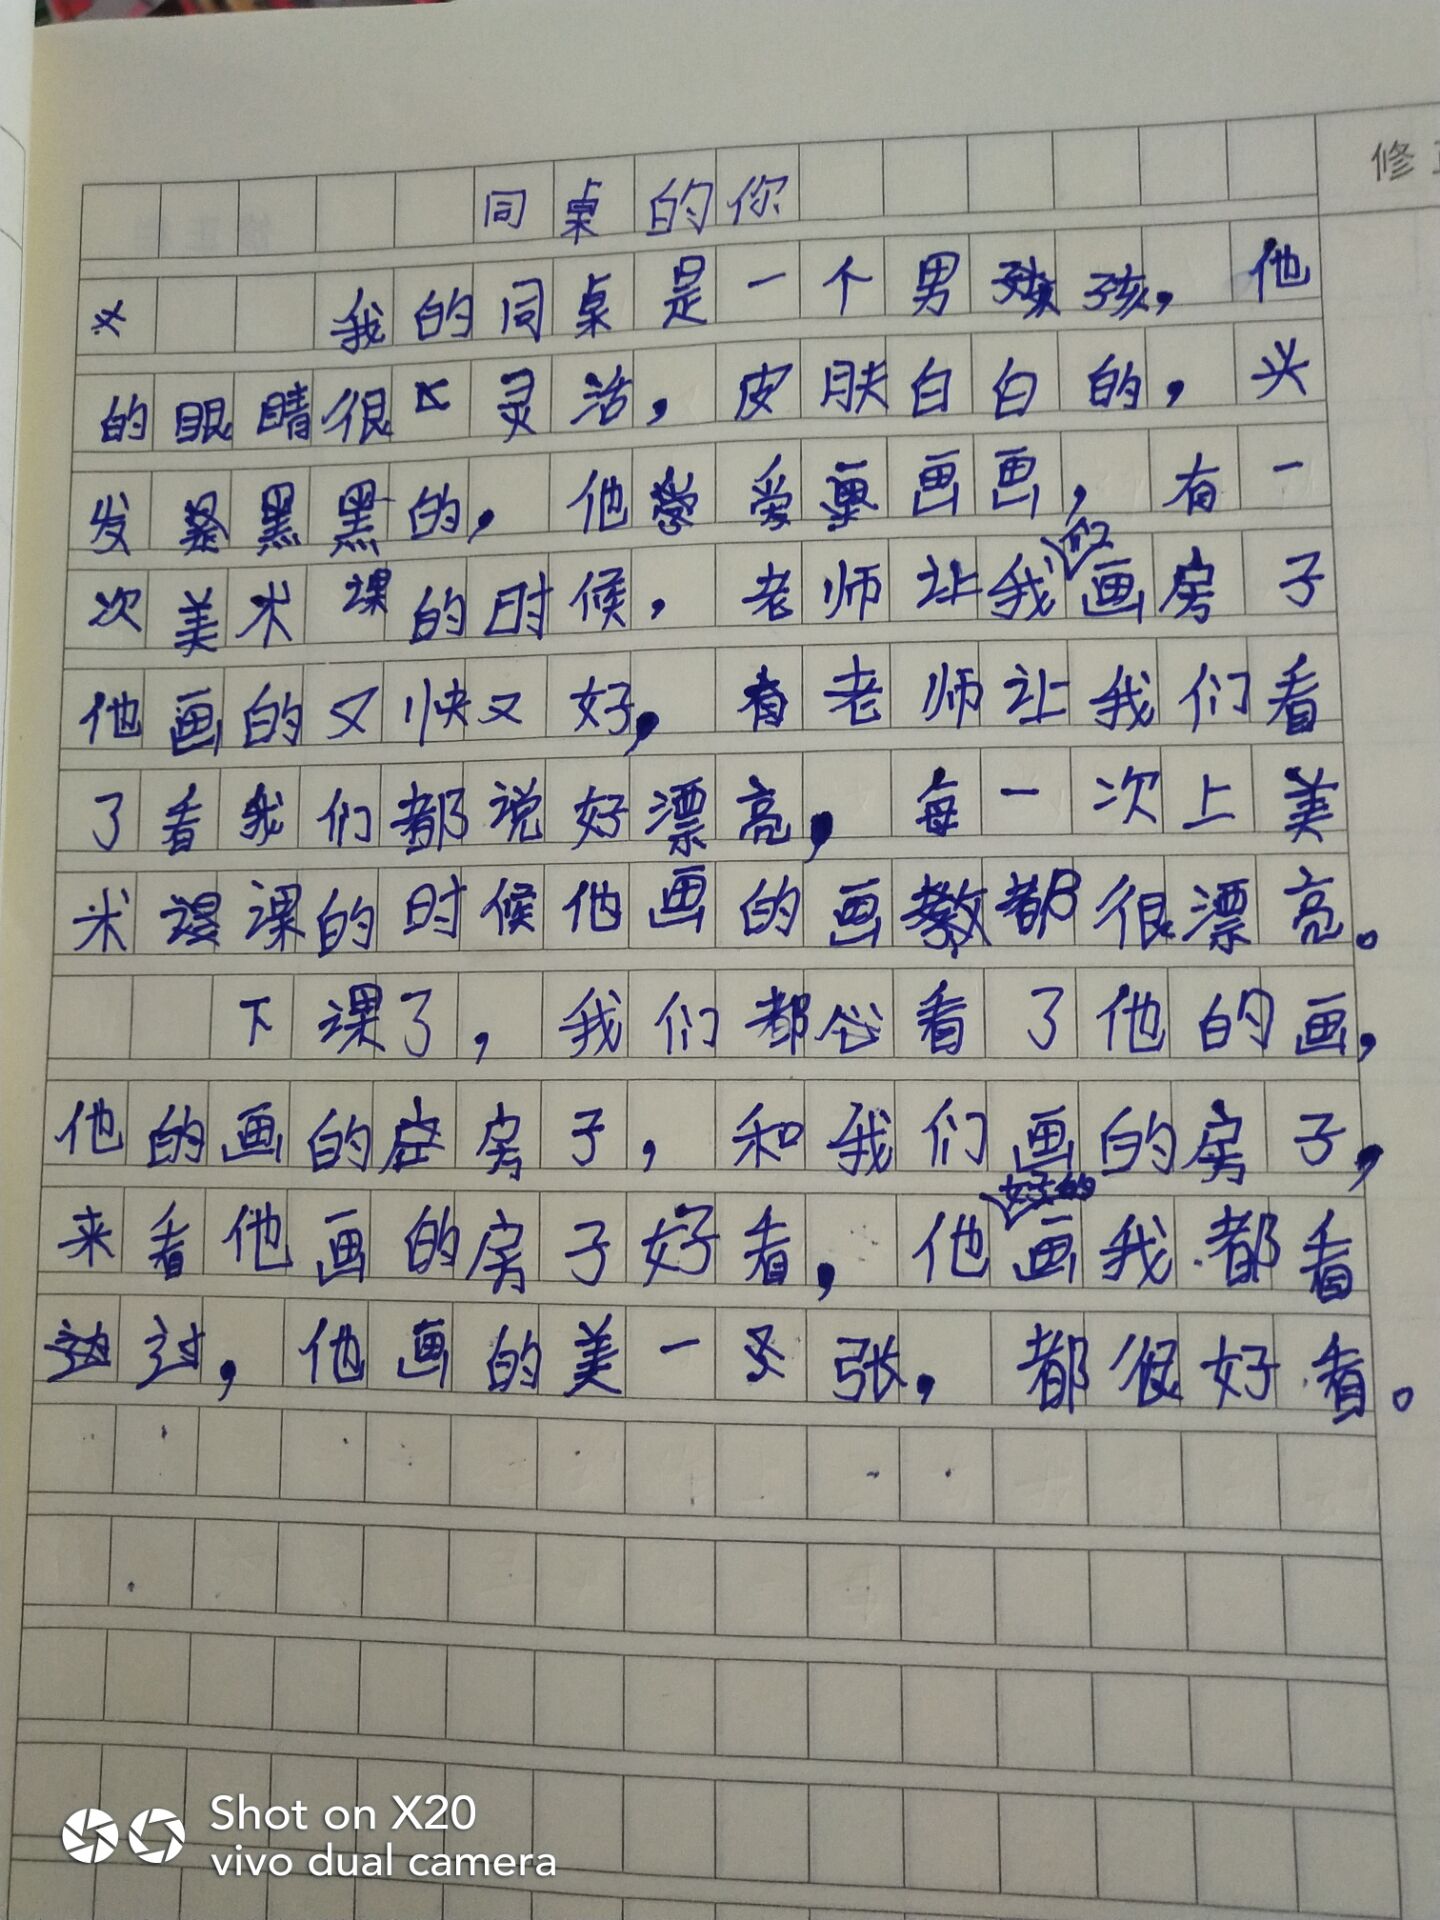 修
同桌的你
我的同桌是一个男孩,他
的眼睛很灵活,皮肤白白的,头
发黑黑的,他爱画画,有一
次美术课的时候,老师让我们画房子
他画的又快又好,老师让我们看
了看我们都说好漂亮,每一次上美
术课的时候他画的画都很漂亮。
下课了,我们都看了他的画,
他的画的房子,和我们画的房子,
来看他画的房子好看,他好的画我都看
过,他画的美一张,都很好看。
Shot on X20
vivo dual camera